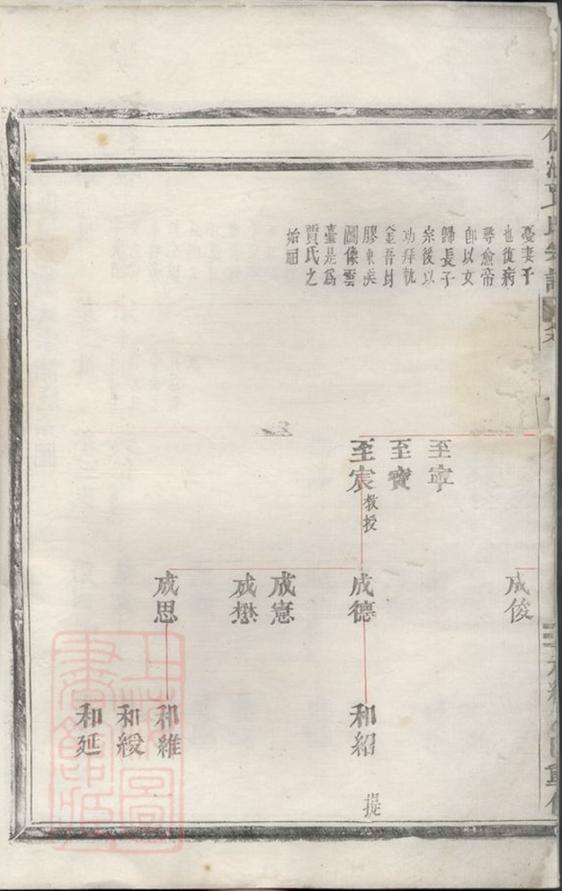 憂妻子
也復病
尋愈帝
卽以女
歸長子
宗後以
功拜執
金吾封
膠東侯
圖像雲
臺是爲
賈氏之
始祖
至寧
至寶
至宸教授
成俊
成德
成憲
成懋
成思
和紹
提
和維
和緩
和延